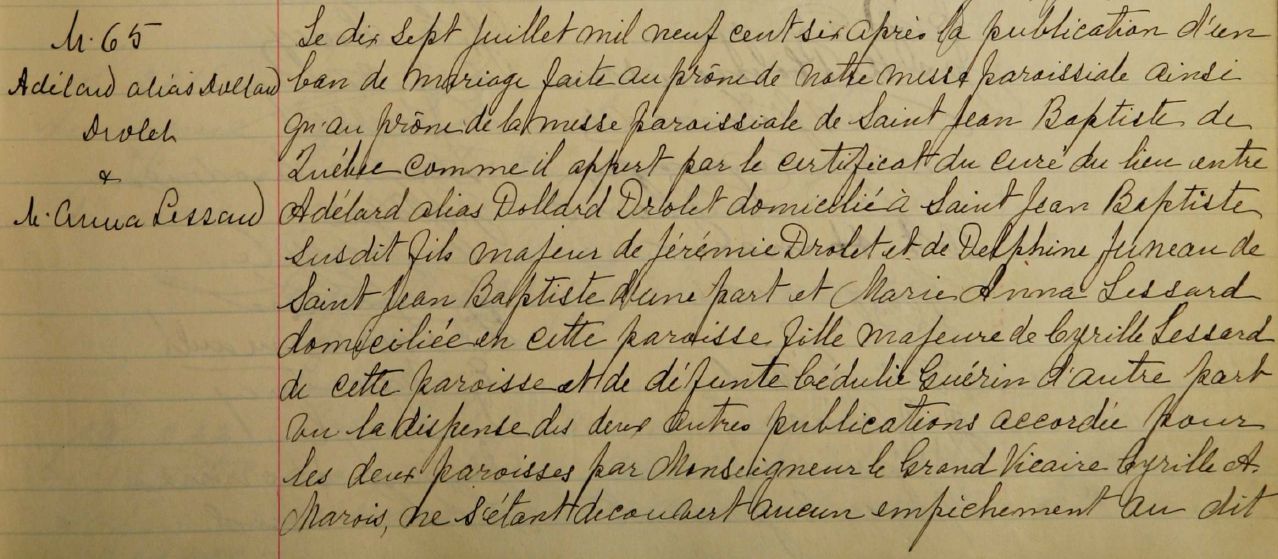 M. 65
Adélard alias Dollard
Drolet
&
M. Anna Lessard
Le dix sept Juillet mil neuf cent six après la publication d'un
ban de mariage faite au prône de notre messe paroissiale ainsi
qu'au prône de la messe paroissiale de Saint Jean Baptiste de
Québec comme il appert par le certificat du curé du lieu entre
Adélard alias Dollard Drolet domicilié à Saint Jean Baptiste
susdit fils majeur de Jérémie Drolet et de Delphine Juneau de
Saint Jean Baptiste d'une part et Marie Anna Lessard
domiciliée en cette paroisse fille majeure de Cyrille Lessard
de cette paroisse et de défunte Cédulie Guérin d'autre part
vu la dispense des deux autres publications accordée pour
les deux paroisses par Monseigneur le Grand Vicaire Cyrille A.
Marois, ne s'étant découvert aucun empêchement au dit